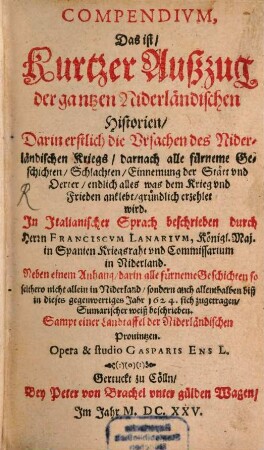 COMPENDIVM,
Das ist/
Kurtzer Außzug
der gantzen Niderländischen
Historien/
Darin erstlich die Vrsachen des Nider-
ländischen Kriegs/ darnach alle fürneme Ge-
schichten/ Schlachten/ Einnemung der Stätt vnd
Oerter/ endlich alles was dem Krieg vnd
Frieden anklebt/ gründlich erzehlet
wird.
In Italianischer Sprach beschrieben durch
Herrn FRANCISCVM LANARIVM, Königl. Maj.
in Spanien Kriegsraht vnd Commissarium
in Niderland.
Neben einem Anhang/ darin alle fürneme Geschichten so
seithero nicht allein in Niderland/ sondern auch allenthalben biß
in dieses gegenwertiges Jahr 1624. sich zugetragen/
Sumarischer weiß beschrieben.
Sampt einer Landtaffel der Niderländischen
Prouintzen.
Opera & studio GASPARIS ENS L.
Getruckt zu Cölln/
Bey Peter von Brachel vnter gülden Wagen/
Im Jahr M. DC. XXV.